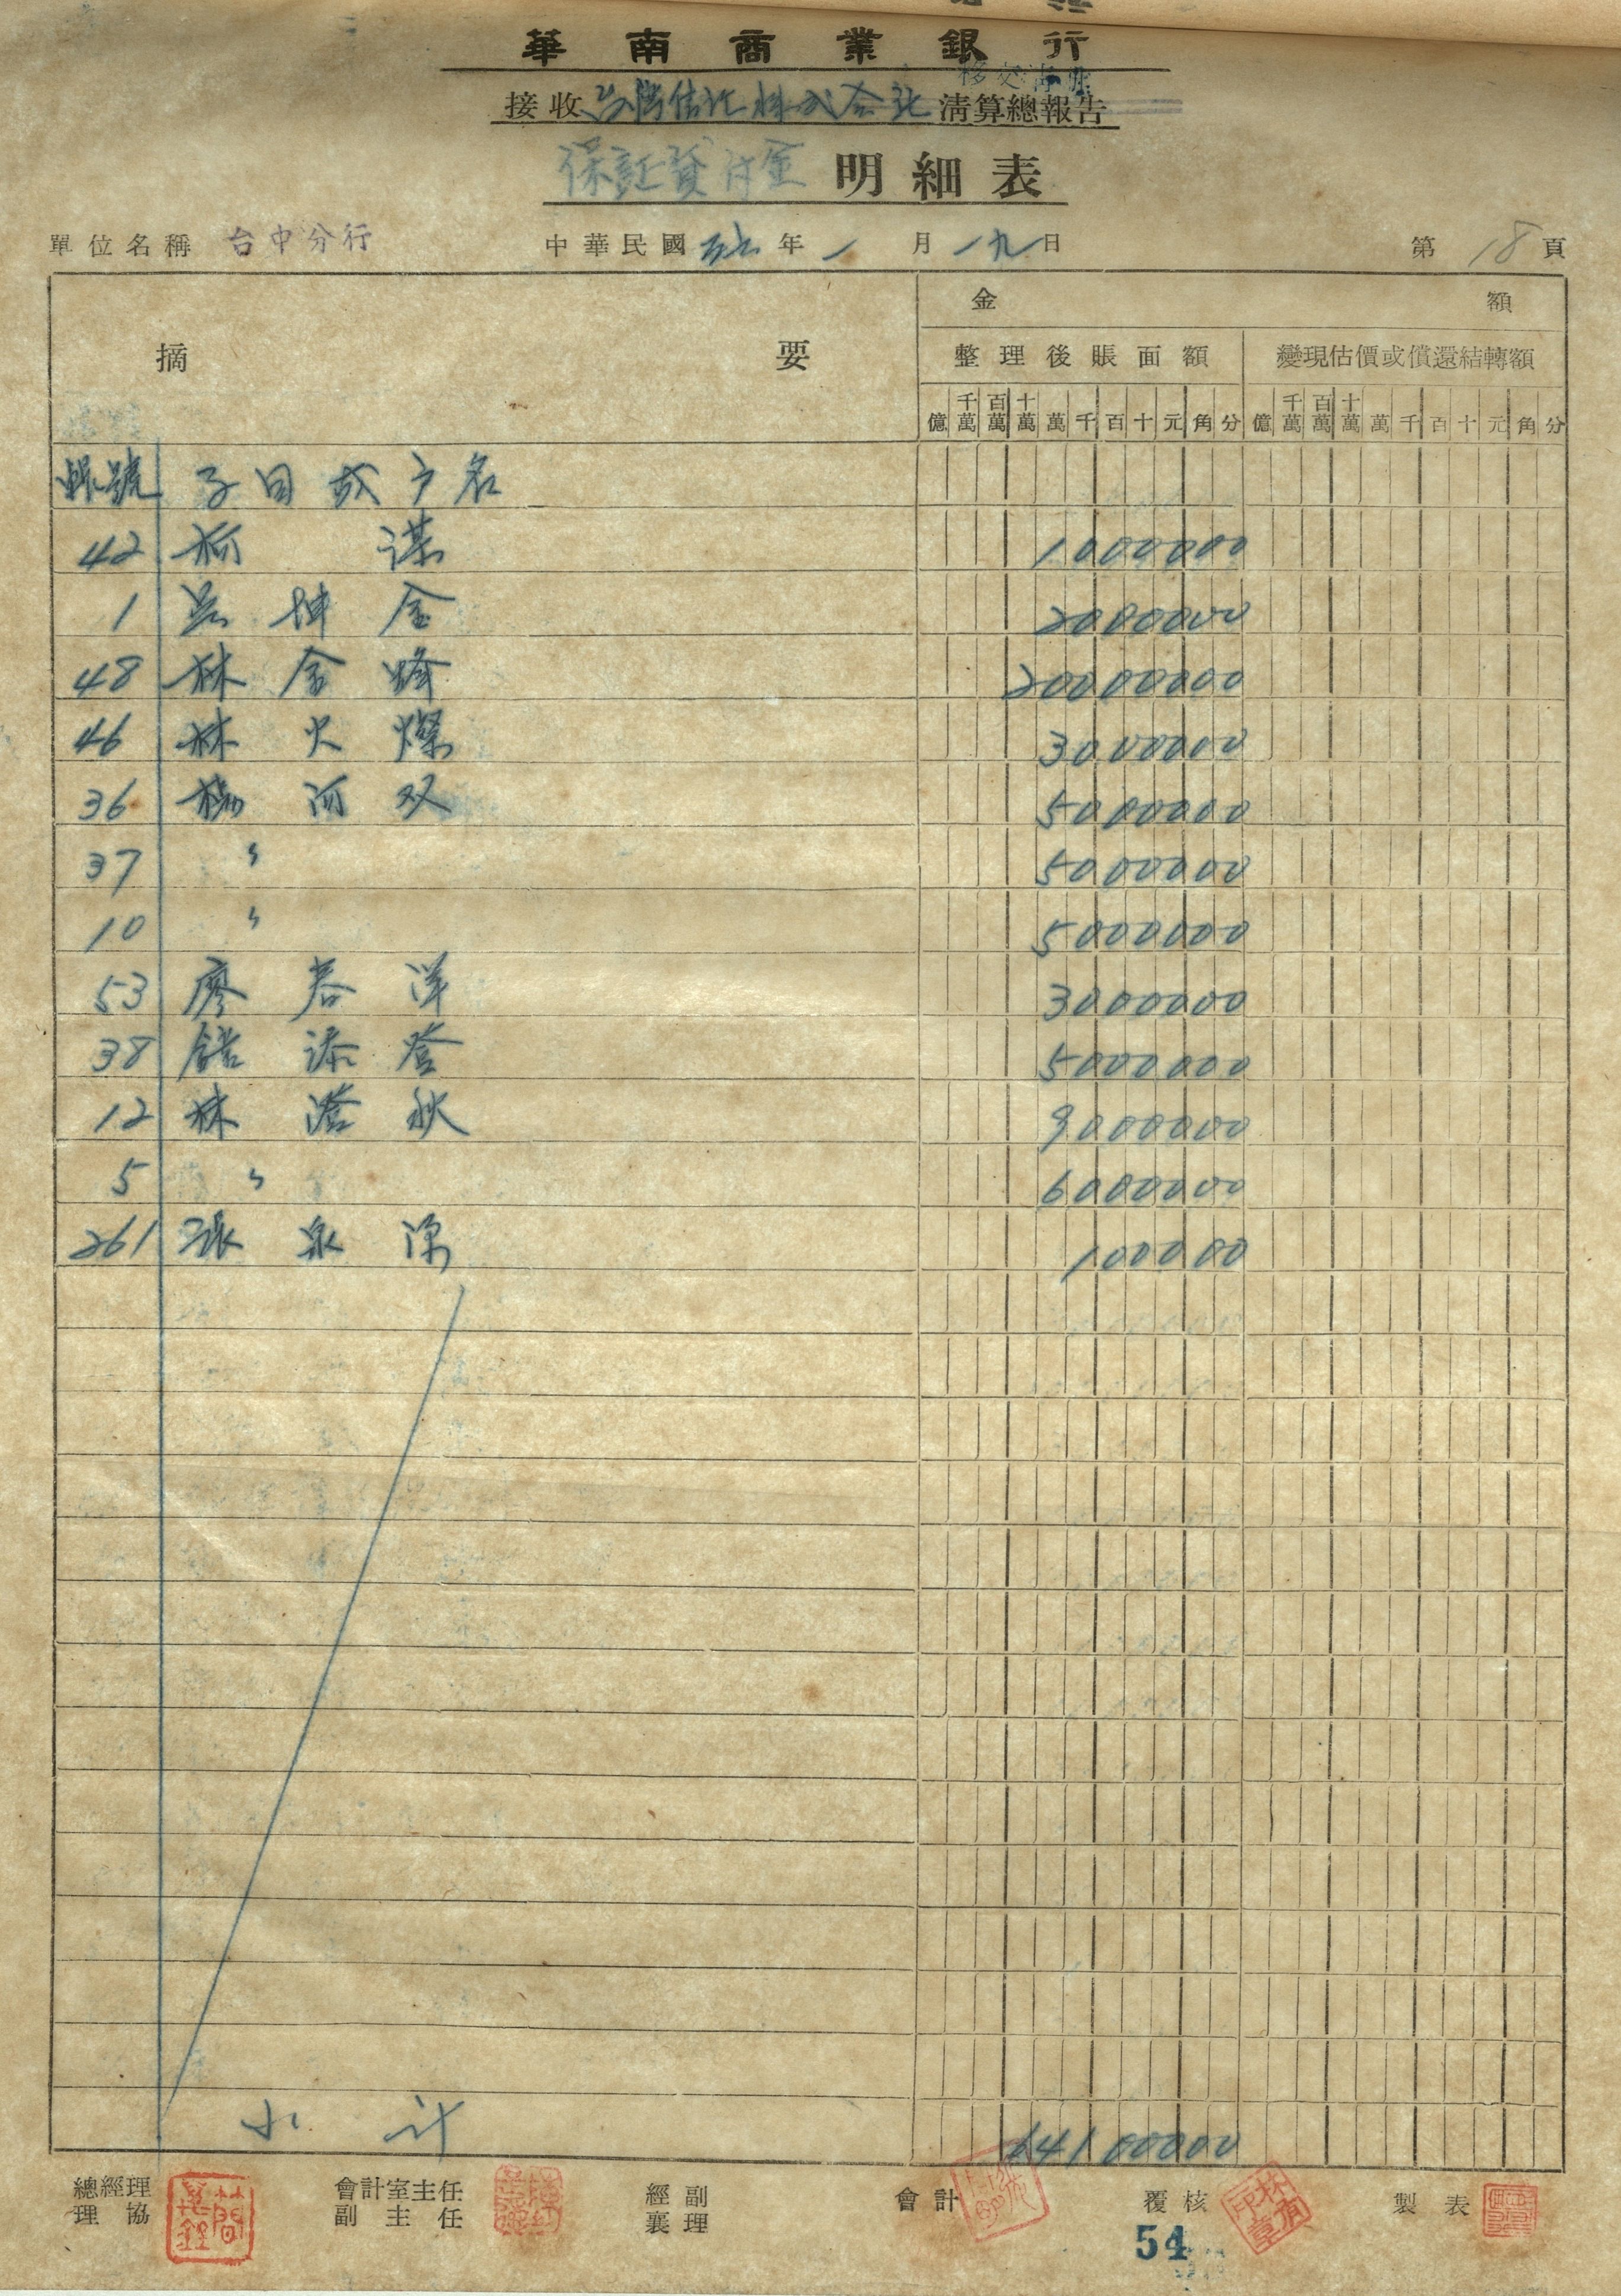 華南商業銀行
移交清冊
接收台灣信託株式会社清算總報告
保証貸付金明細表
單位名稱 台中分行 中華民國 年 1 月 一九 日 第 18 頁
摘要 金額
整理後賬面額 變現估價或償還結轉額
億 千萬 百萬 十萬 萬 千 百 十 元 角 分 億 千萬 百萬 十萬 萬 千 百 十 元 角 分
號 子目或戶名
42 謀 1000000
1 吳坤金 2000000
48 林金 20000000
46 林火燦 3000000
36 楊河双 5000000
37 〃 5000000
10 〃 5000000
53 廖春洋 3000000
38 添登 5000000
12 林澄秋 9000000
5 〃 6000000
261 張泉 100000
小計 64100000
總經理 協理 會計室主任 副主任 經副襄理 會計 覆核 製表
54